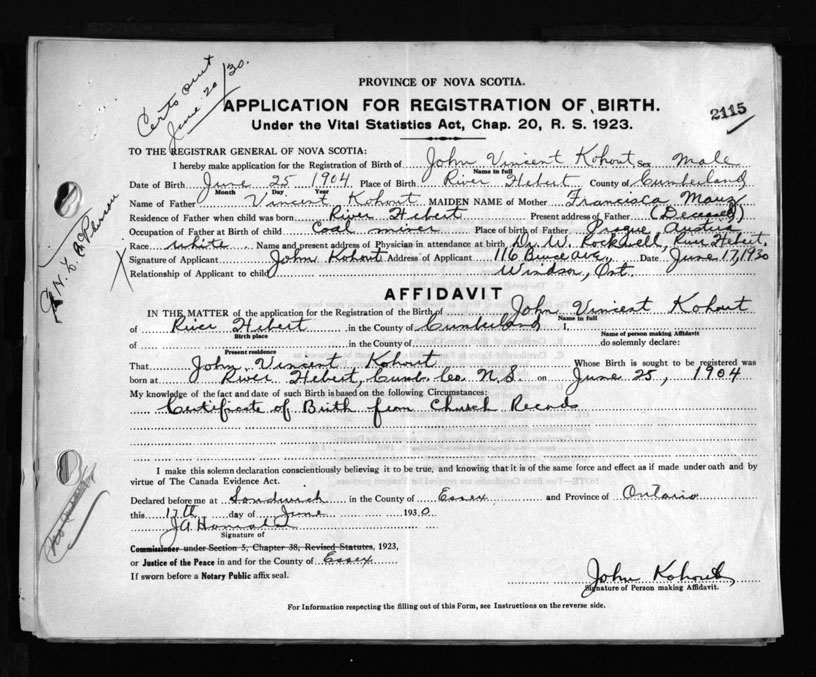 Certs out
June 20/30.
PROVINCE OF NOVA SCOTIA.
APPLICATION FOR REGISTRATION OF BIRTH.
2115
Under the Vital Statistics Act, Chap. 20, R. S. 1923.
TO THE REGISTRAR GENERAL OF NOVA SCOTIA:
I hereby make application for the Registration of Birth of John Vincent Kohout Sex Male
Name in full
Date of Birth June 25 1904 Place of Birth River Hebert County of Cumberland
Month Day Year
Name of Father Vincent Kohout MAIDEN NAME of Mother Francisca
Residence of Father when child was born River Hebert Present address of Father (Deceased)
Occupation of Father at Birth of child Coal miner Place of birth of Father Prague, Austria
Race white Name and present address of Physician in attendance at birth Dr. W. Rockwell, River Hebert.
Signature of Applicant John Kohout Address of Applicant 116 Bruce Ave., Date June 17, 1930
Relationship of Applicant to child Windsor, Ont.
AFFIDAVIT
IN THE MATTER of the application for the Registration of the Birth of John Vincent Kohout
Name in full
of River Hebert in the County of Cumberland I,
Birth place Name of person making Affidavit
of in the County of do solemnly declare:
Present residence
That John Vincent Kohout Whose Birth is sought to be registered was
born at River Hebert, Cumb. Co. N.S. on June 25, 1904
My knowledge of the fact and date of such Birth is based on the following Circumstances:
Certificate of Birth from Church Records
I make this solemn declaration conscientiously believing it to be true, and knowing that it is of the same force and effect as if made under oath and by
virtue of The Canada Evidence Act.
Declared before me at Sandwich in the County of Essex and Province of Ontario
this 17th day of June 1930
Signature of
Commissioner under Section 5, Chapter 38, Revised Statutes, 1923,
or Justice of the Peace in and for the County of Essex
If sworn before a Notary Public affix seal.
John Kohout
Signature of Person making Affidavit.
For Information respecting the filling out of this Form, see Instructions on the reverse side.